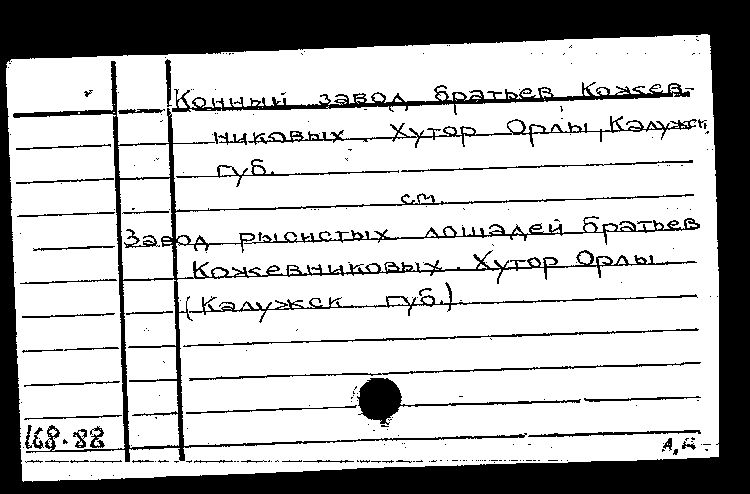 Конный завод братьев Кожев-
никовых. Хутор Орлы, Калужск.
губ.
см.
Завод рысистых лошадей братьев
Кожевниковых. Хутор Орлы
(Калужск. губ.).
168.88